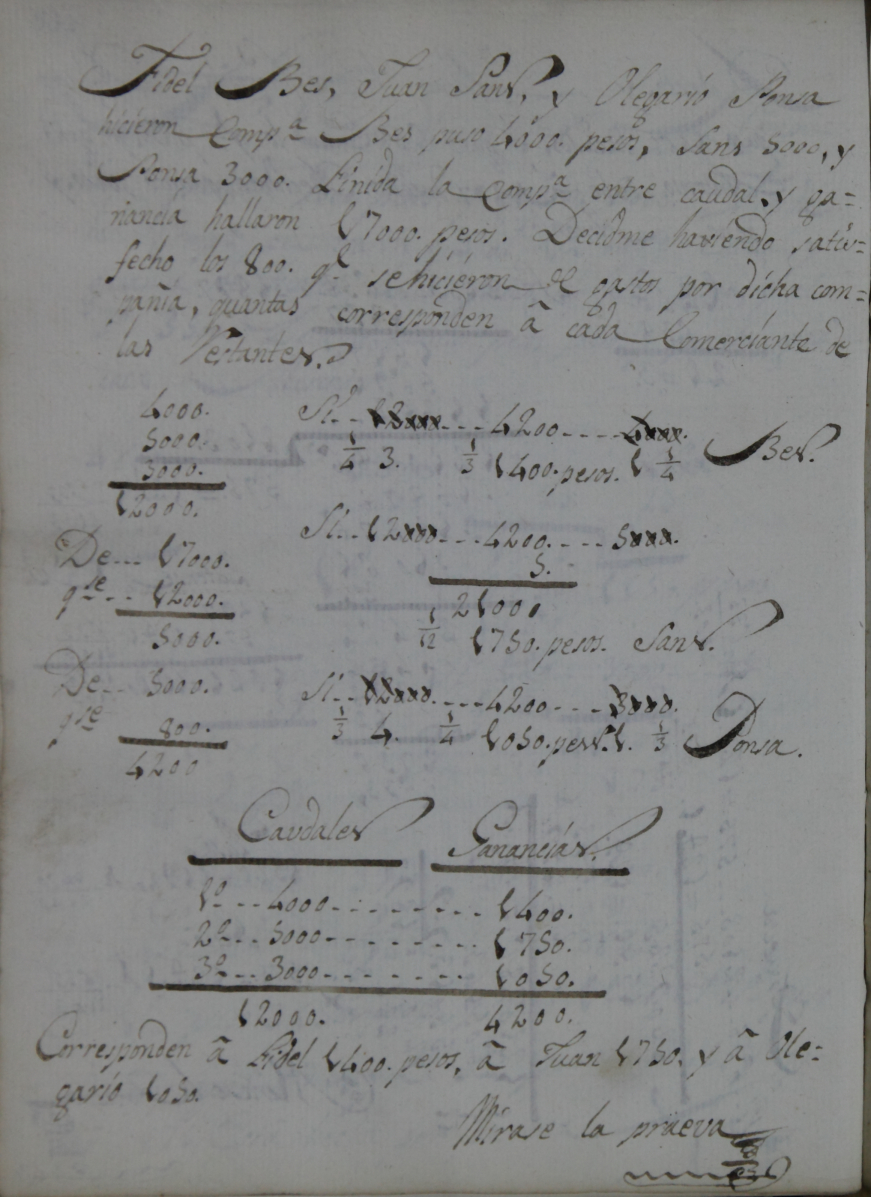 Fidel Bes, Juan Sans, y Olegario Ponsa
hicieron Comp.ª Bes puso 4000. pesos, Sans 5000, y
Ponsa 3000. Finida la Comp.ª entre caudal, y ga=
nancia hallaron 17000. pesos. Decidme haviendo satis=
fecho los 800. q.e se hicieron de gastos por dicha com=
pañia, quantas corresponden â cada Comerciante de
las Restantes.
4000.
5000.
3000.
12000.
De--- 17000.
q.se--- 12000.
5000.
De--- 5000.
q.se 800.
4200
Si--- 12000---4200----4000.
1/4 3. 1/3 1400. pesos. 1 1/4 Bes.
Si--- 12000---4200----5000.
5.
21000
1/12 1750. pesos. Sans.
Si--- 12000----4200----3000.
1/3 4. 1/4 1050. pesos. 1. 1/3 Ponsa.
Caudales Ganancias.
1º---4000---------1400.
2º---5000---------1750.
3º---3000---------1050.
12000. 4200.
Corresponden â Fidel 1400. pesos, â Juan 1750. y â Ole=
gario 1050.
Mirase la prueva